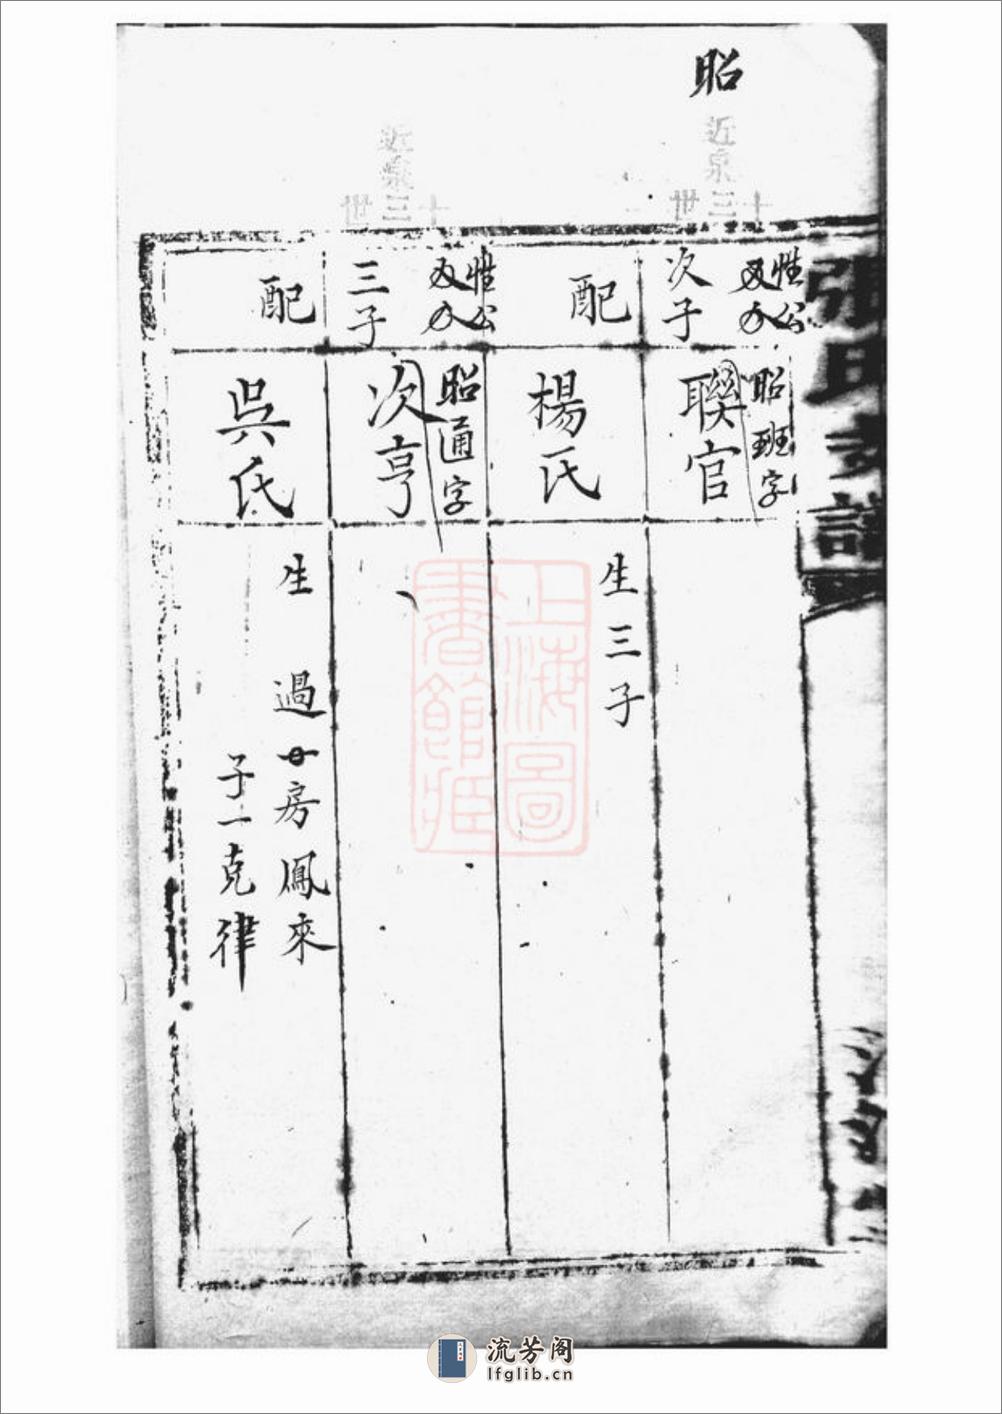 昭
近泉
十三世
惟公
次子
昭班字
聯官
配
楊氏
生三子
近泉
十三世
惟公
三子
昭通字
次亨
配
吳氏
生　過　房鳳來
子一克律
張氏支譜
上海圖書館藏
流芳阁
lfglib.cn